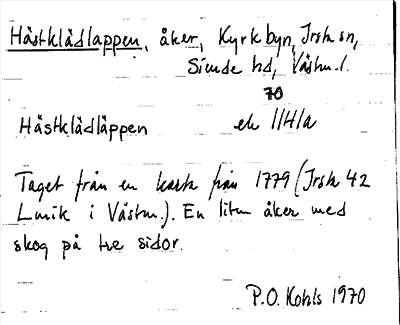 Hästklädlappen, åker, Kyrkbyn, Irsta sn,
Siende hd, Västm. l.
70
Hästklädläppen ek 1/4/a
Taget från en karta från 1779 (Irsta 42
Lmk i Västm.). En liten åker med
skog på tre sidor.
P.O. Kohls 1970